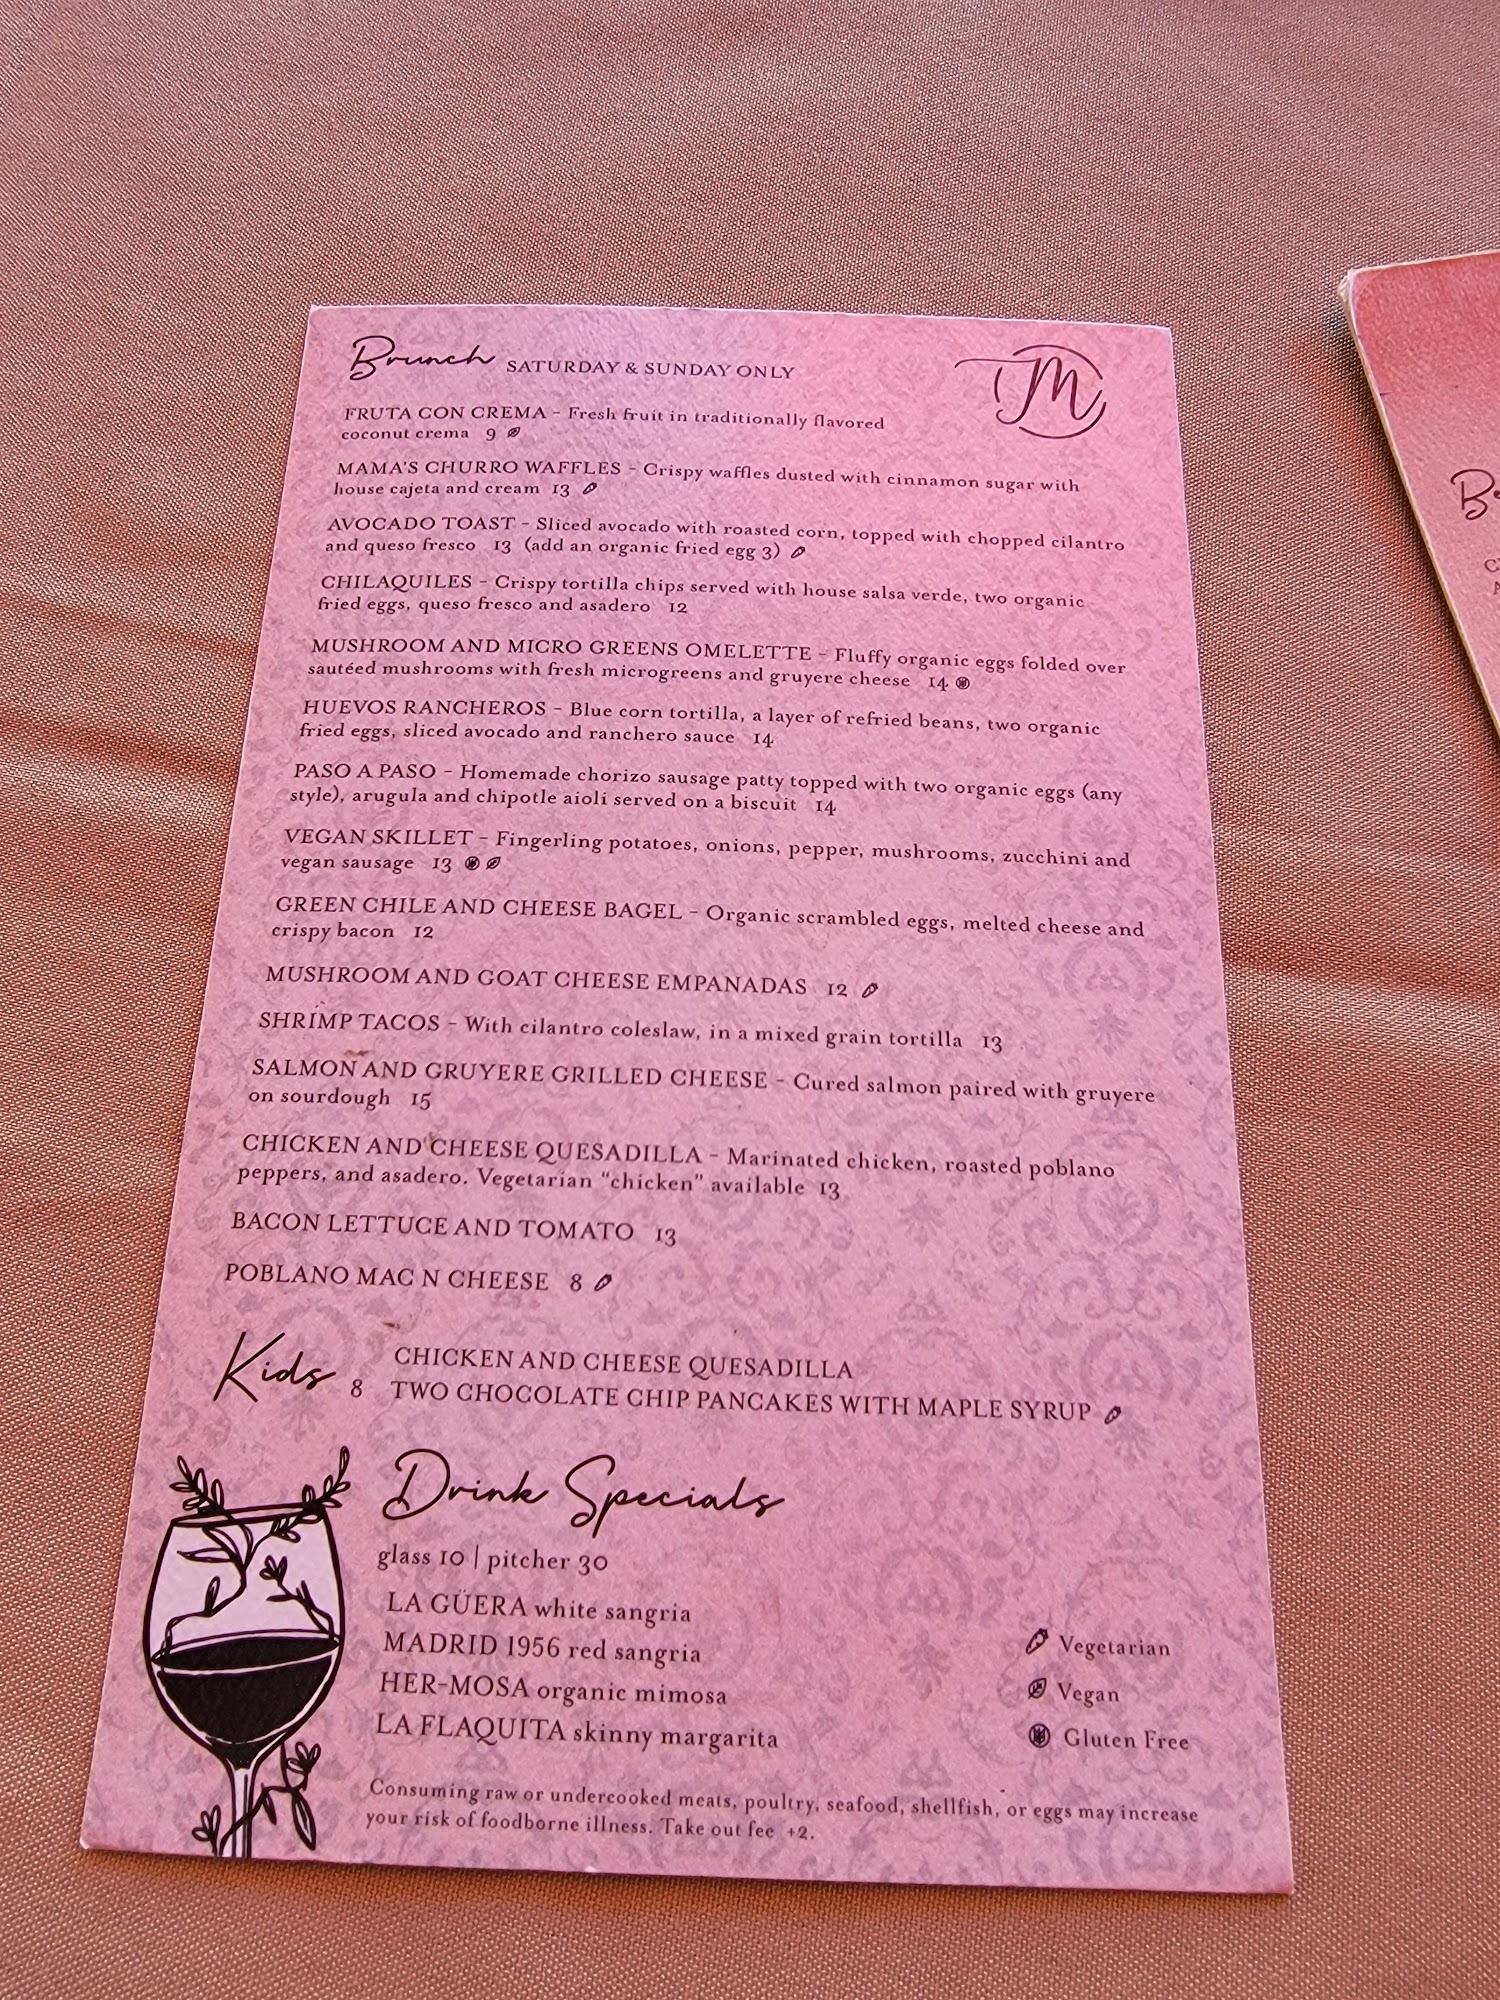 Brunch SATURDAY & SUNDAY ONLY
M
FRUTA CON CREMA - Fresh fruit in traditionally flavored
coconut crema 9
MAMA'S CHURRO WAFFLES - Crispy waffles dusted with cinnamon sugar with
house cajeta and cream 13
AVOCADO TOAST - Sliced avocado with roasted corn, topped with chopped cilantro
and queso fresco 13 (add an organic fried egg 3)
CHILAQUILES - Crispy tortilla chips served with house salsa verde, two organic
fried eggs, queso fresco and asadero 12
MUSHROOM AND MICRO GREENS OMELETTE - Fluffy organic eggs folded over
sautéed mushrooms with fresh microgreens and gruyere cheese 14
HUEVOS RANCHEROS - Blue corn tortilla, a layer of refried beans, two organic
fried eggs, sliced avocado and ranchero sauce 14
PASO A PASO - Homemade chorizo sausage patty topped with two organic eggs (any
style), arugula and chipotle aioli served on a biscuit 14
VEGAN SKILLET - Fingerling potatoes, onions, pepper, mushrooms, zucchini and
vegan sausage 13
GREEN CHILE AND CHEESE BAGEL - Organic scrambled eggs, melted cheese and
crispy bacon 12
MUSHROOM AND GOAT CHEESE EMPANADAS 12
SHRIMP TACOS - With cilantro coleslaw, in a mixed grain tortilla 13
SALMON AND GRUYERE GRILLED CHEESE - Cured salmon paired with gruyere
on sourdough 15
CHICKEN AND CHEESE QUESADILLA - Marinated chicken, roasted poblano
peppers, and asadero. Vegetarian "chicken" available 13
BACON LETTUCE AND TOMATO 13
POBLANO MAC N CHEESE 8
Kids 8
CHICKEN AND CHEESE QUESADILLA
TWO CHOCOLATE CHIP PANCAKES WITH MAPLE SYRUP
Drink Specials
glass 10 | pitcher 30
LA GÜERA white sangria
MADRID 1956 red sangria
HER-MOSA organic mimosa
LA FLAQUITA skinny margarita
Vegetarian
Vegan
Gluten Free
Consuming raw or undercooked meats, poultry, seafood, shellfish, or eggs may increase
your risk of foodborne illness. Take out fee +2.